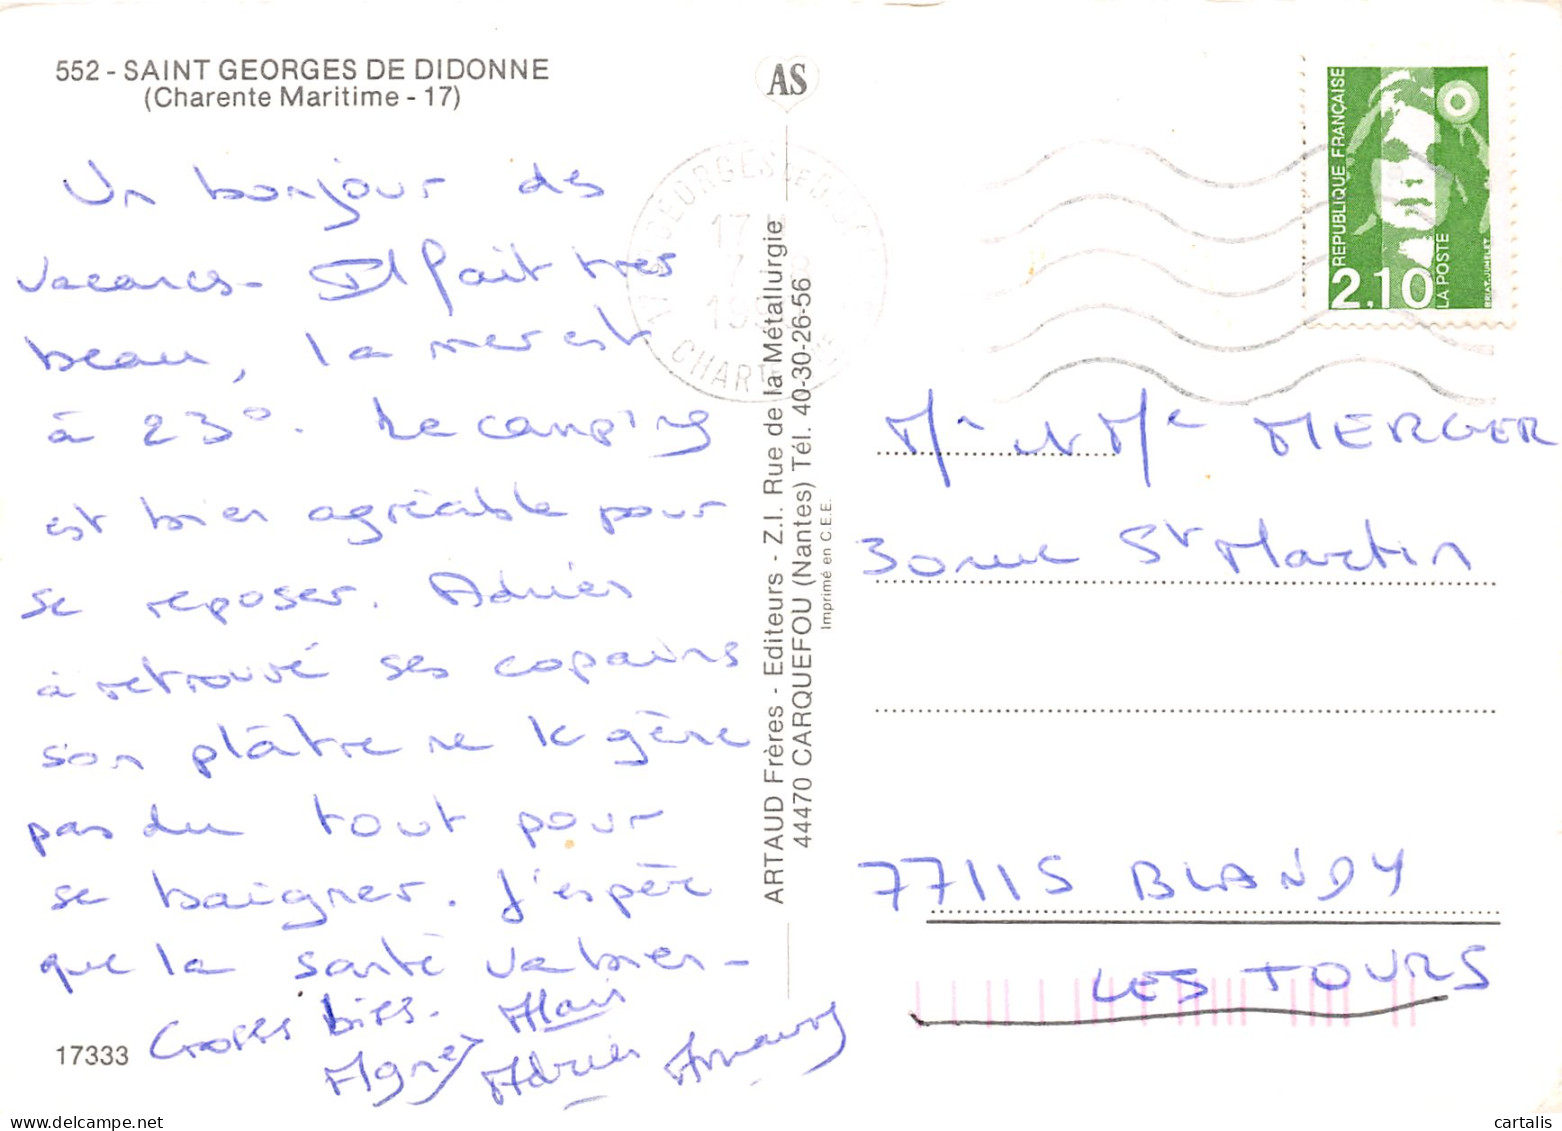 552 - SAINT GEORGES DE DIDONNE
(Charente Maritime - 17)
Un bonjour des
vacances - Il fait tres
beau, la mer est
à 23°. Le camping
est bien agréable pour
se reposer. Adrien
a retrouvé ses copains
son plâtre ne le gène
pas du tout pour
se baigner. J'espère
que la santé va bien -
Grosses bises.
Alain
Agnes Adrien Amaury
17333
AS
ARTAUD Frères - Editeurs - Z.I. Rue de la Métallurgie
44470 CARQUEFOU (Nantes) Tél. 40-30-26-56
Imprimé en C.E.E.
REPUBLIQUE FRANÇAISE
2,10
LA POSTE
Mr et Me MERGER
30 rue St Martin
77115 BLANDY
LES TOURS
cartalis